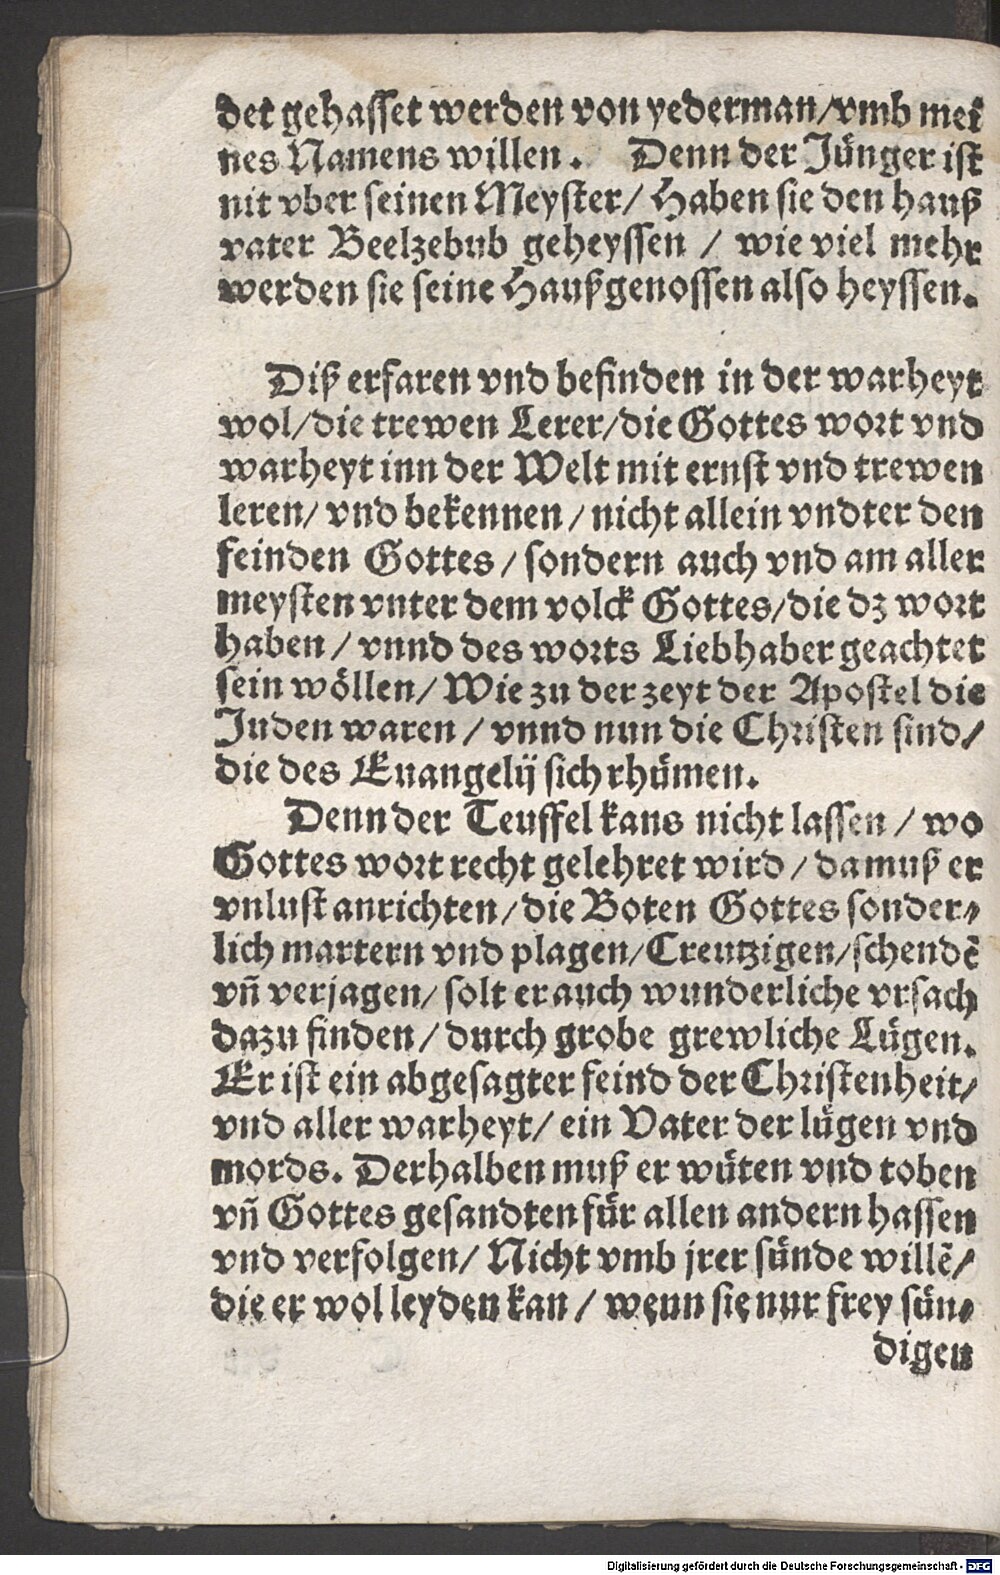 det gehasset werden von yederman/vmb mei
nes Namens willen. Denn der Jünger ist
nit vber seinen Meyster/ Haben sie den hauß
vater Beelzebub geheyssen / wie viel mehr
werden sie seine Haußgenossen also heyssen.
Diß erfaren vnd befinden in der warheyt
wol/die trewen Lerer/die Gottes wort vnd
warheyt inn der Welt mit ernst vnd trewen
leren/ vnd bekennen / nicht allein vndter den
feinden Gottes / sondern auch vnd am aller
meysten vnter dem volck Gottes/die dz wort
haben / vnnd des worts Liebhaber geachtet
sein wöllen/ Wie zu der zeyt der Apostel die
Juden waren / vnnd nun die Christen sind/
die des Euangelij sich rhümen.
Denn der Teuffel kans nicht lassen / wo
Gottes wort recht gelehret wird / da muß er
vnlust anrichten/die Boten Gottes sonder⸗
lich martern vnd plagen/Creutzigen/schendē
vñ verjagen/ solt er auch wunderliche vrsach
dazu finden / durch grobe grewliche Lügen.
Er ist ein abgesagter feind der Christenheit/
vnd aller warheyt/ ein Vater der lügen vnd
mords. Derhalben muß er wüten vnd toben
vñ Gottes gesandten für allen andern hassen
vnd verfolgen/ Nicht vmb jrer sünde willē/
die er wol leyden kan / wenn sie nur frey sün⸗
digen
Digitalisierung gefördert durch die Deutsche Forschungsgemeinschaft - DFG